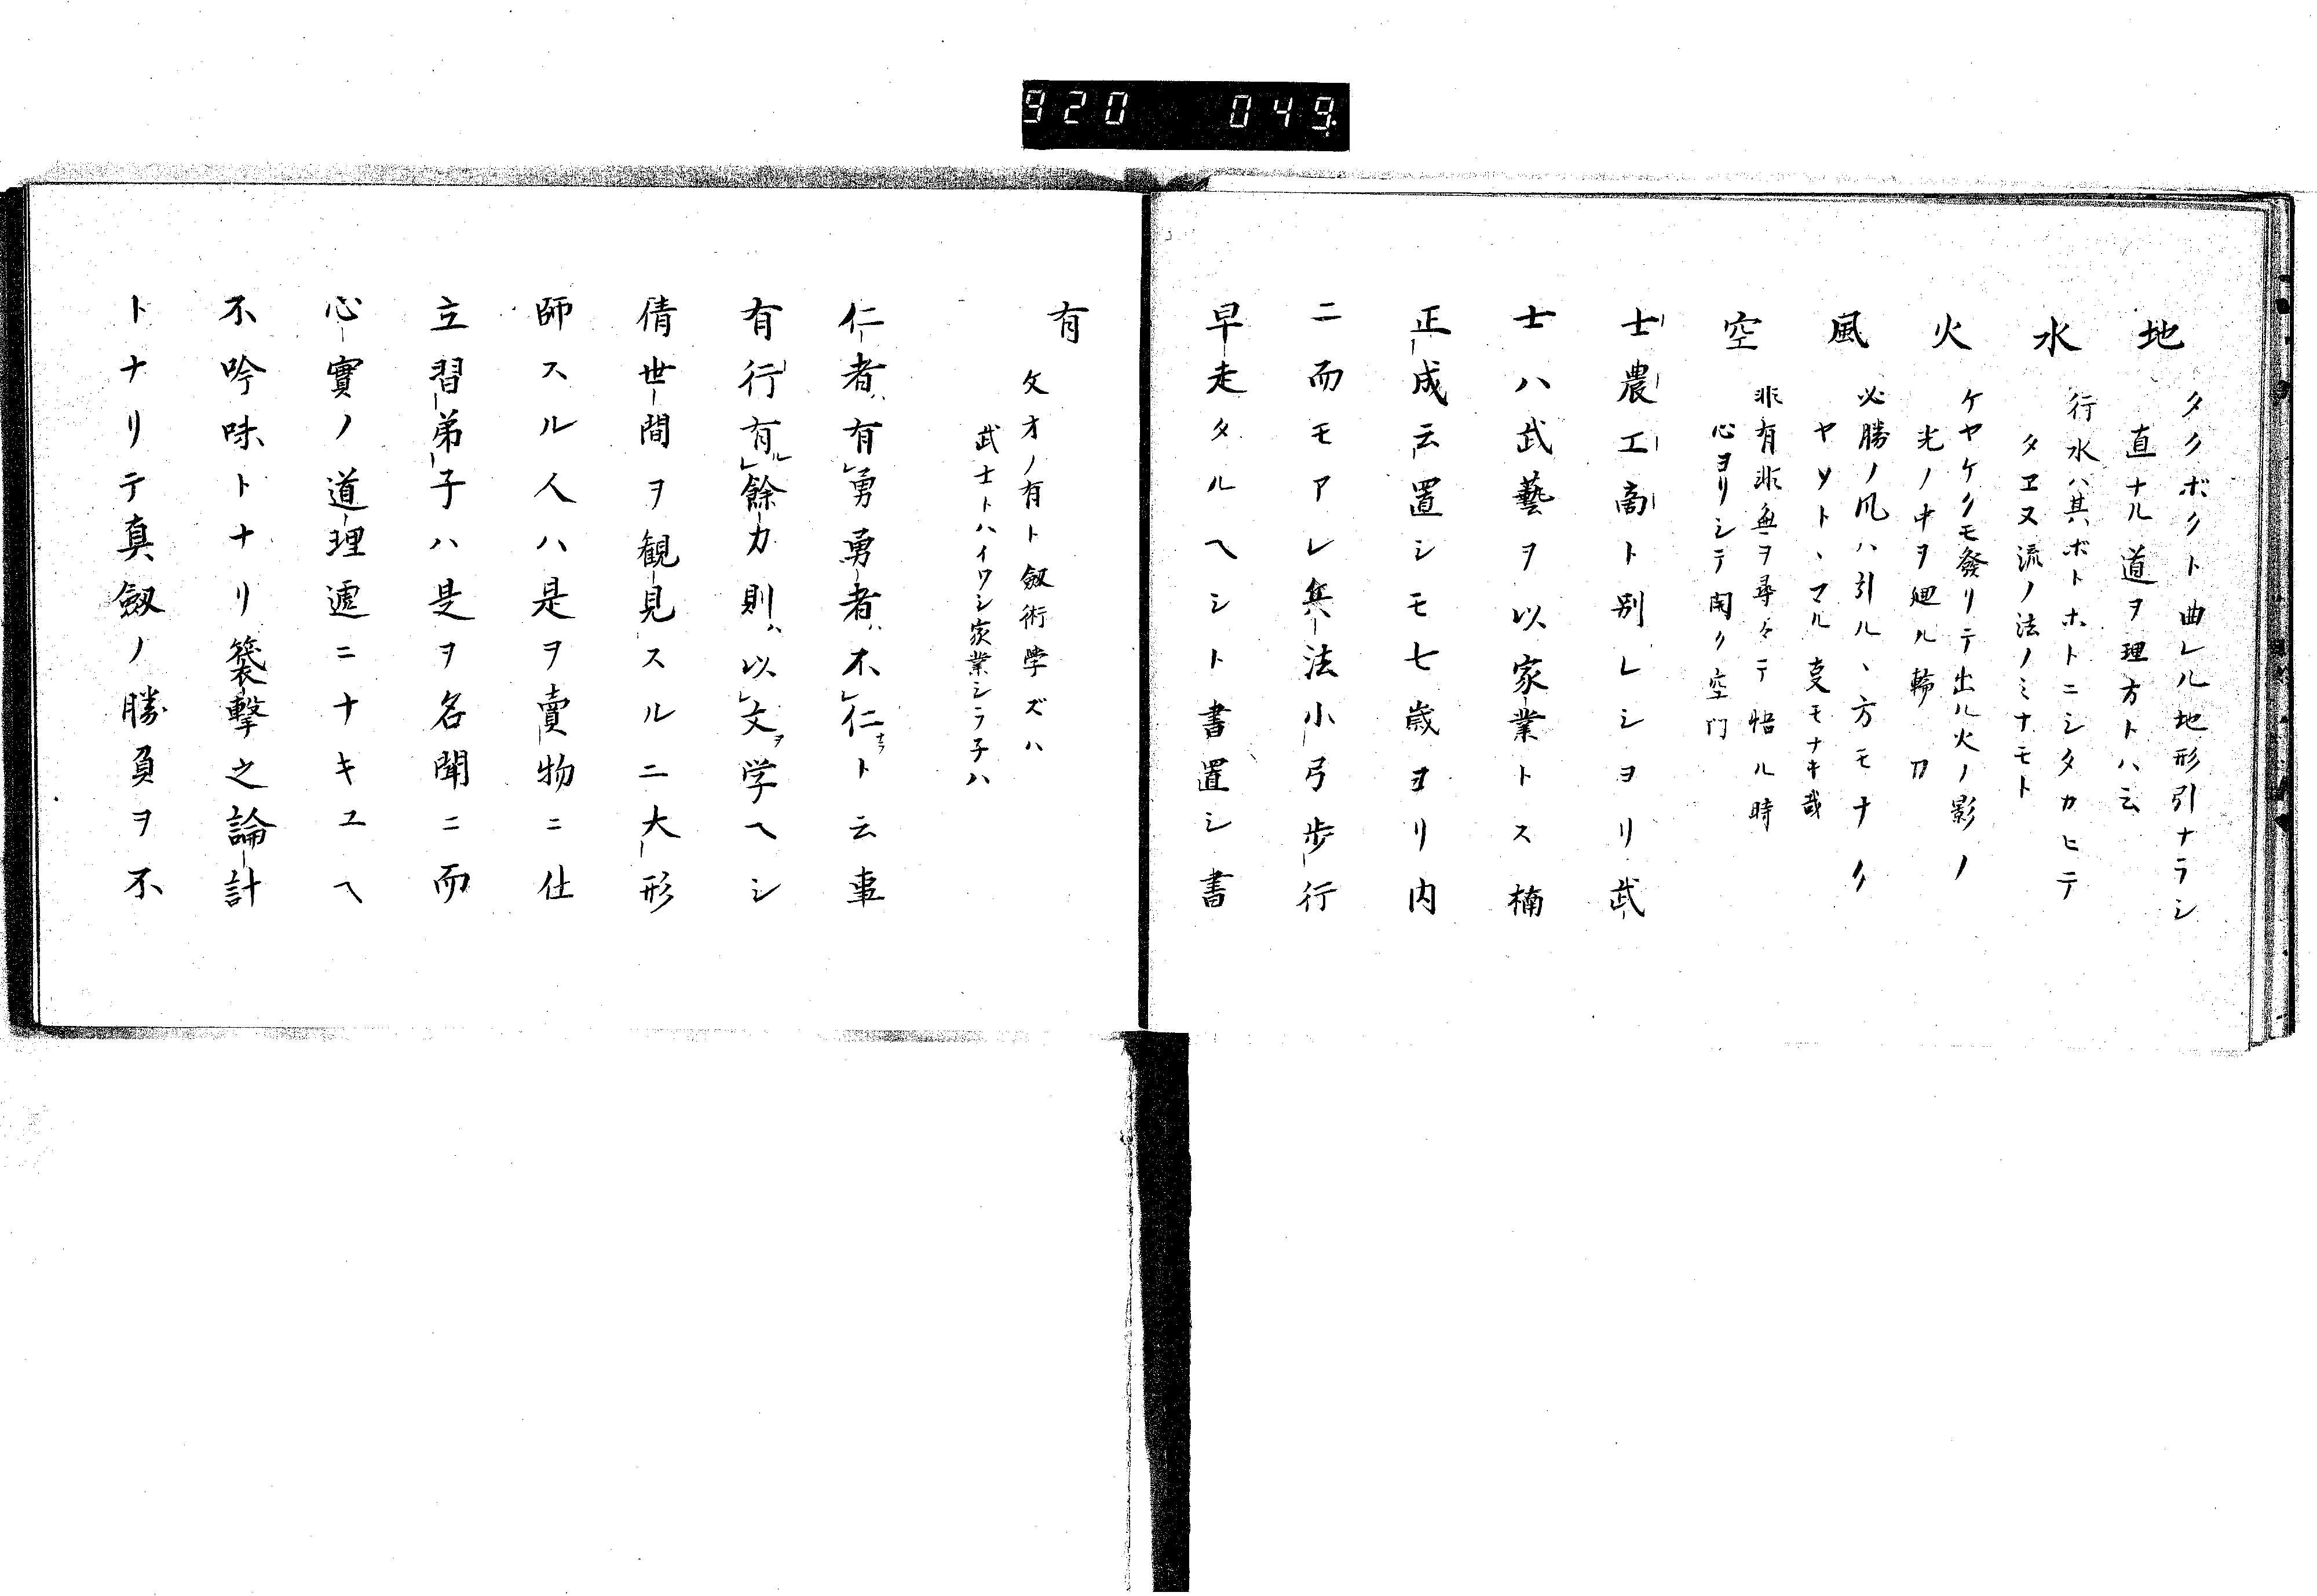 920 049
地
タクボクト曲レル地形引ナラシ
直ナル道ヲ理方トハ云
水
行水ハ其ボトホトニシタカヒテ
タヱヌ流ノ法ノミナモト
火
ケヤケクモ發リテ出ル火ノ影ノ
光ノ中ヲ廻ル輪刀
風
必勝ノ風ハ引ル、方モナク
ヤソト、マル叓モナキ哉
空
非有非無ヲ尋々テ悟ル時
心ヨリシテ開ク空門
士農工商ト別レシヨリ武
士ハ武藝ヲ以家業トス楠
正成云置シモ七歳ヨリ内
ニ而モアレ兵法小弓歩行
早走タルヘシト書置シ書
有
文オノ有ト劔術学ズハ
武士トハイワシ家業シラ子ハ
仁者ハ有レ勇勇者ハ不レ仁ナラト云事
有行有ルレ餘力則ハ以レ文ヲ学ヘシ
倩世間ヲ観見スルニ大形
師スル人ハ是ヲ賣物ニ仕
立習弟子ハ是ヲ名聞ニ而
心實ノ道理遽ニナキユヘ
不吟味トナリ袋撃之論計
トナリテ真劔ノ勝負ヲ不